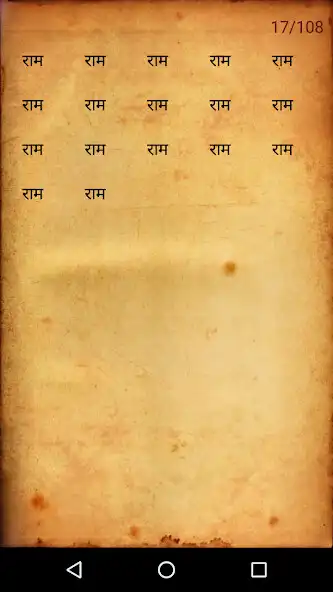 17/108
राम राम राम राम राम
राम राम राम राम राम
राम राम राम राम राम
राम राम